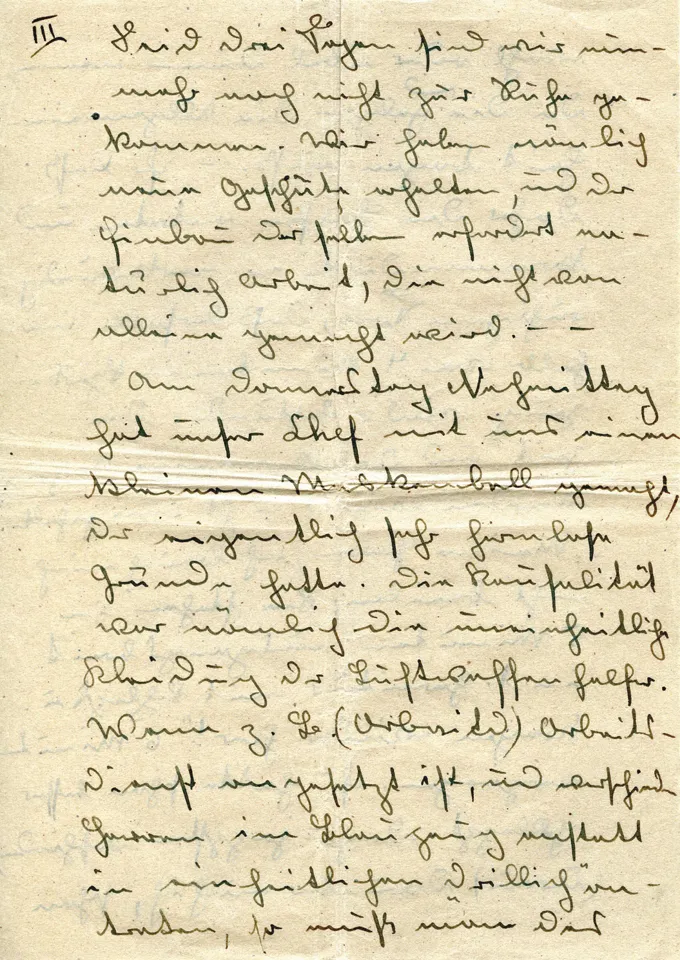 III Seid drei Tagen sind wir nun-
mehr noch nicht zur Ruhe ge-
kommen. Wir haben nämlich
neue Geschüte erhalten, und der
Einbau derselben erfordert na-
türlich Arbeit, die nicht von
alleine gemacht wird. – –
Am Donnerstag Nachmittag
hat unser Chef mit uns einen
kleinen Maskenball gemacht,
der eigentlich sehr hirnlose
Gründe hatte. Die Kausalität
war nämlich die uneinheitliche
Kleidung der Luftwaffenhelfer.
Wenn z. B. (Arbeitd) Arbeits-
dienst angesetzt ist, und verschiede
Herren im Blauzeug anstatt
in einheitlichen Drillich an-
treten, so muß man das